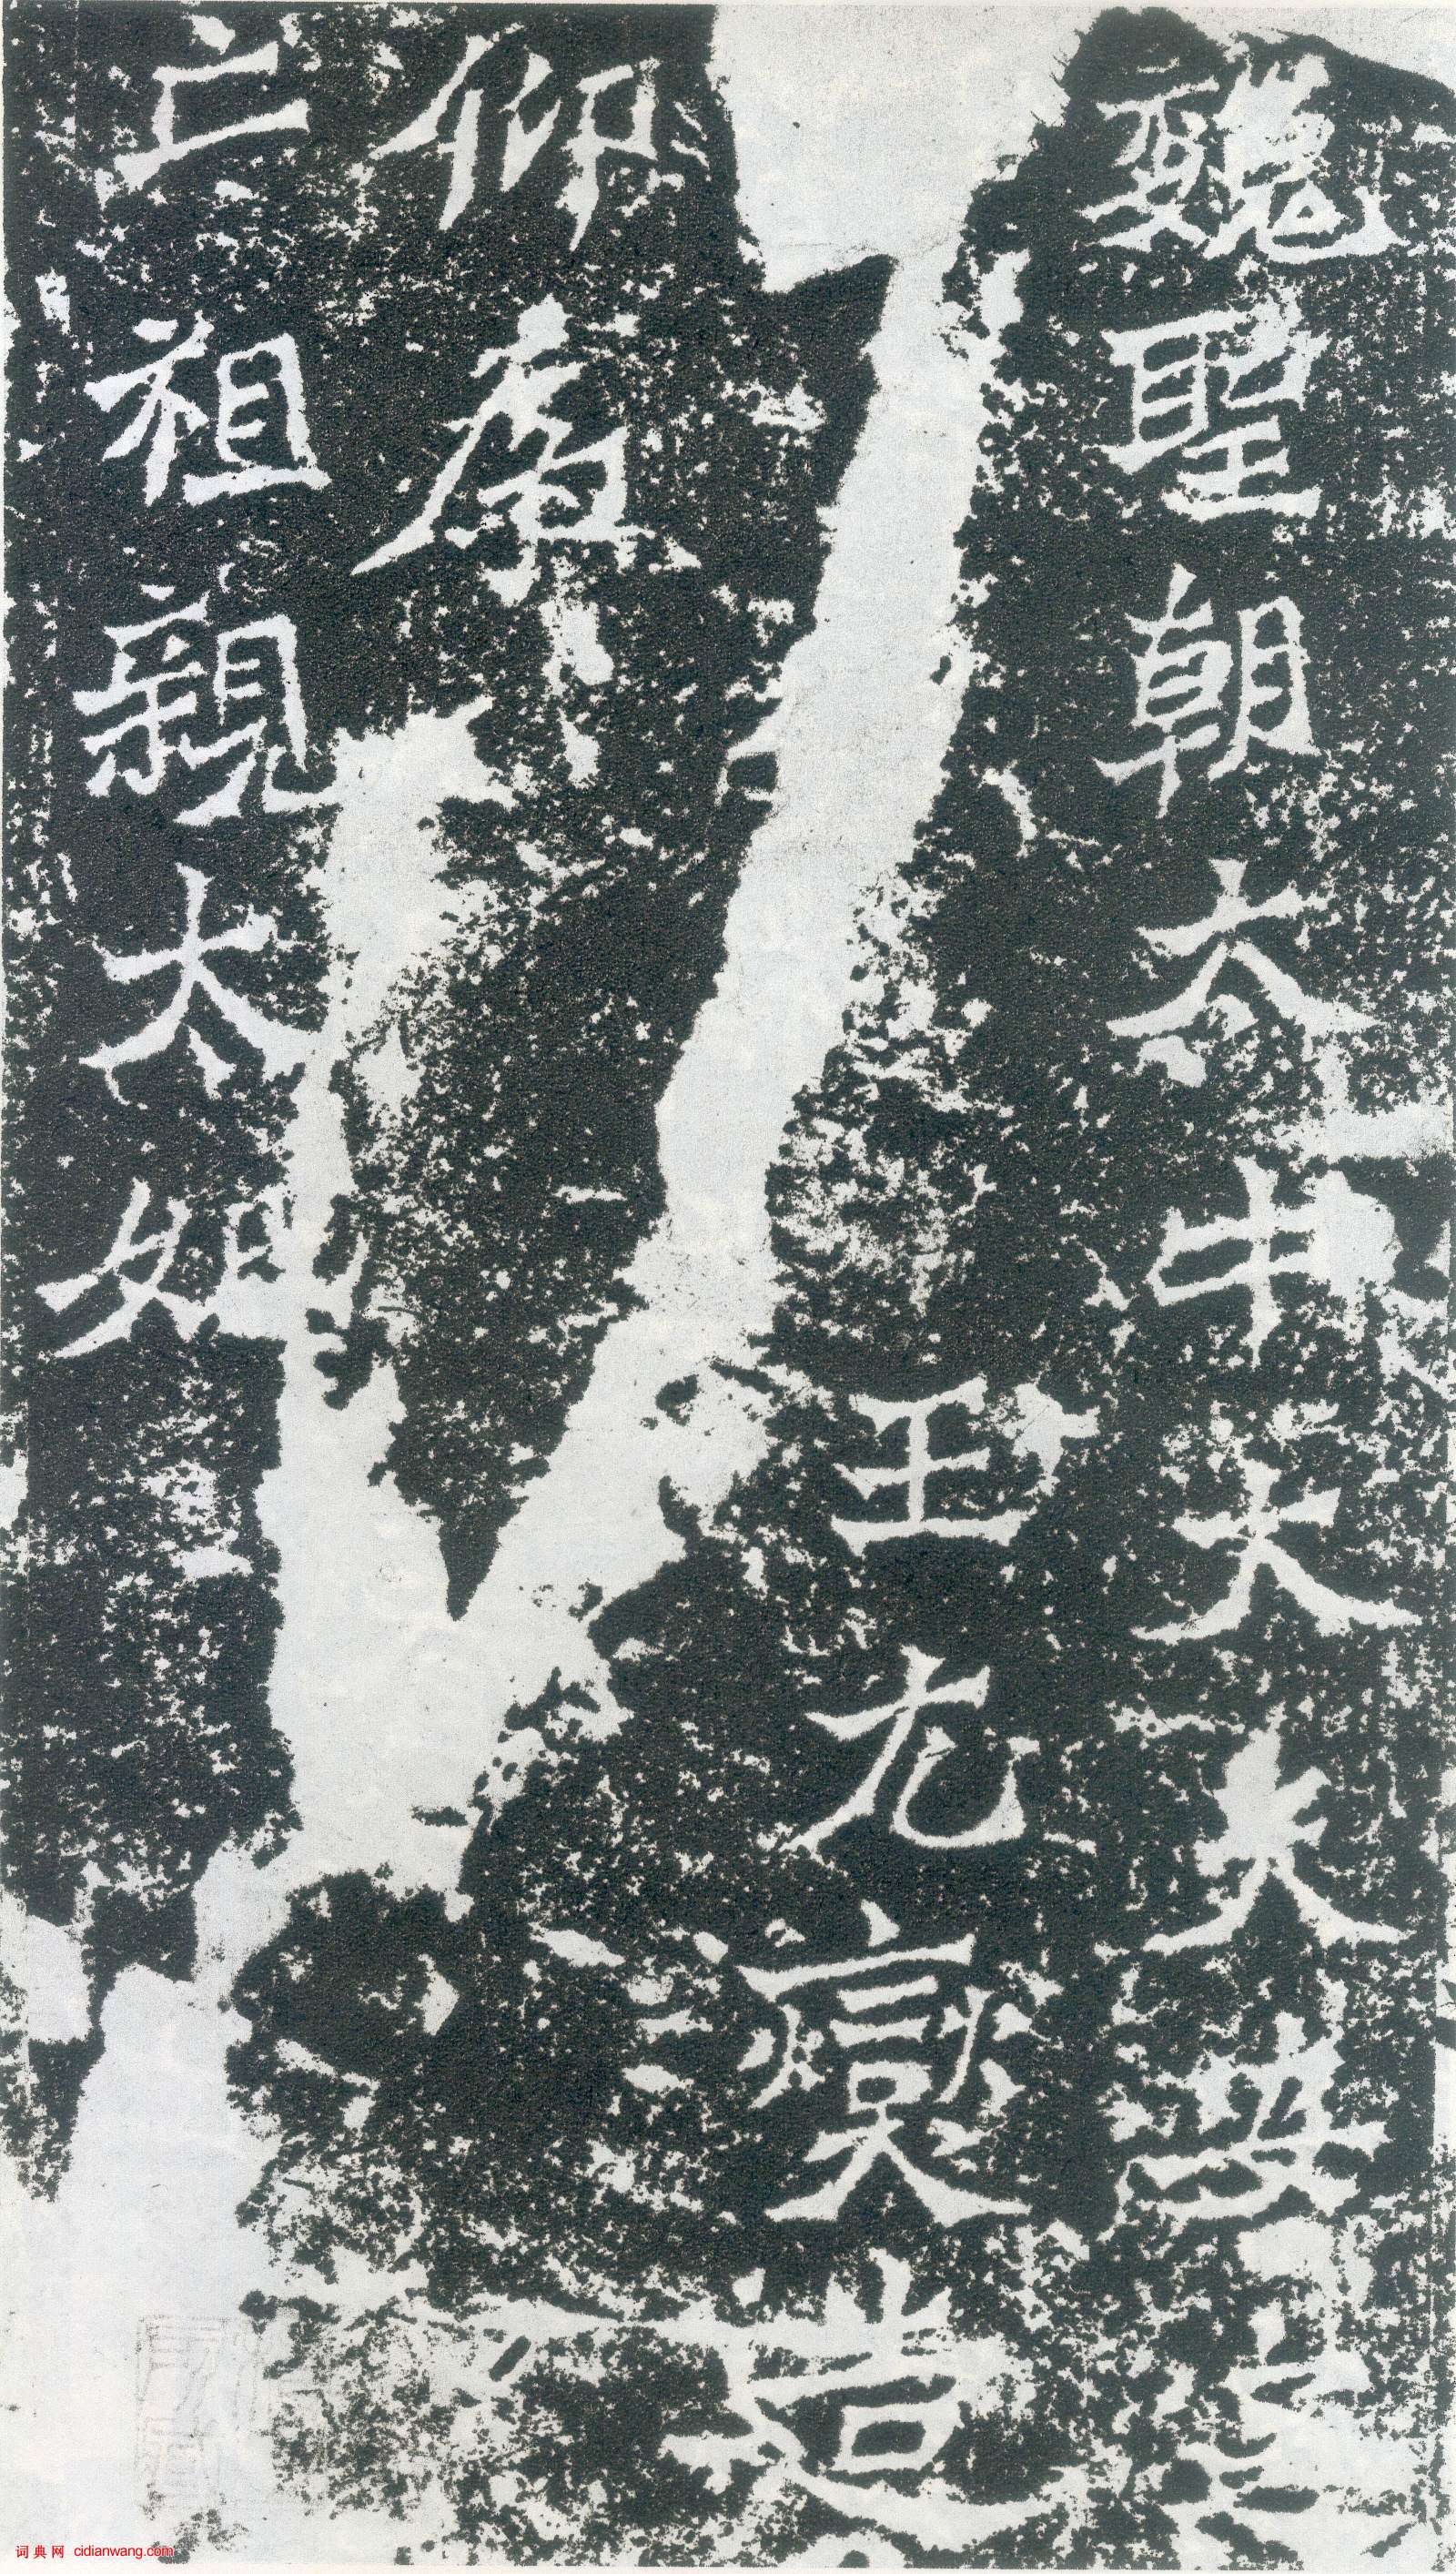 魏聖朝太中大夫
王元燮造
仰為
亡祖親太妃
词典网 cidianwang.com